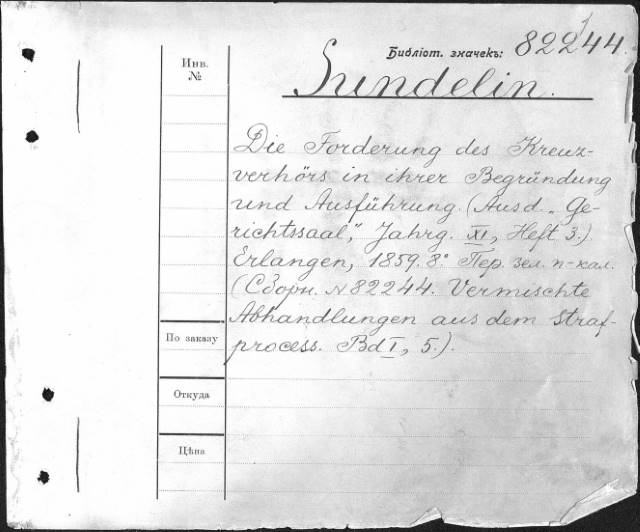 Библіот. значекъ: 82244.
Инв.
№
Sundelin.
Die Forderung des Kreuz-
verhörs in ihrer Begründung
und Ausführung. (Aus d. „Ge-
richtssaal", Jahrg. XI, Heft 3.)
Erlangen, 1859. 8° Пер. зел. п-кал.
(Сборн. №82244. Vermischte
Abhandlungen aus dem Straf-
process. Bd I, 5.).
По заказу
Откуда
Цѣна